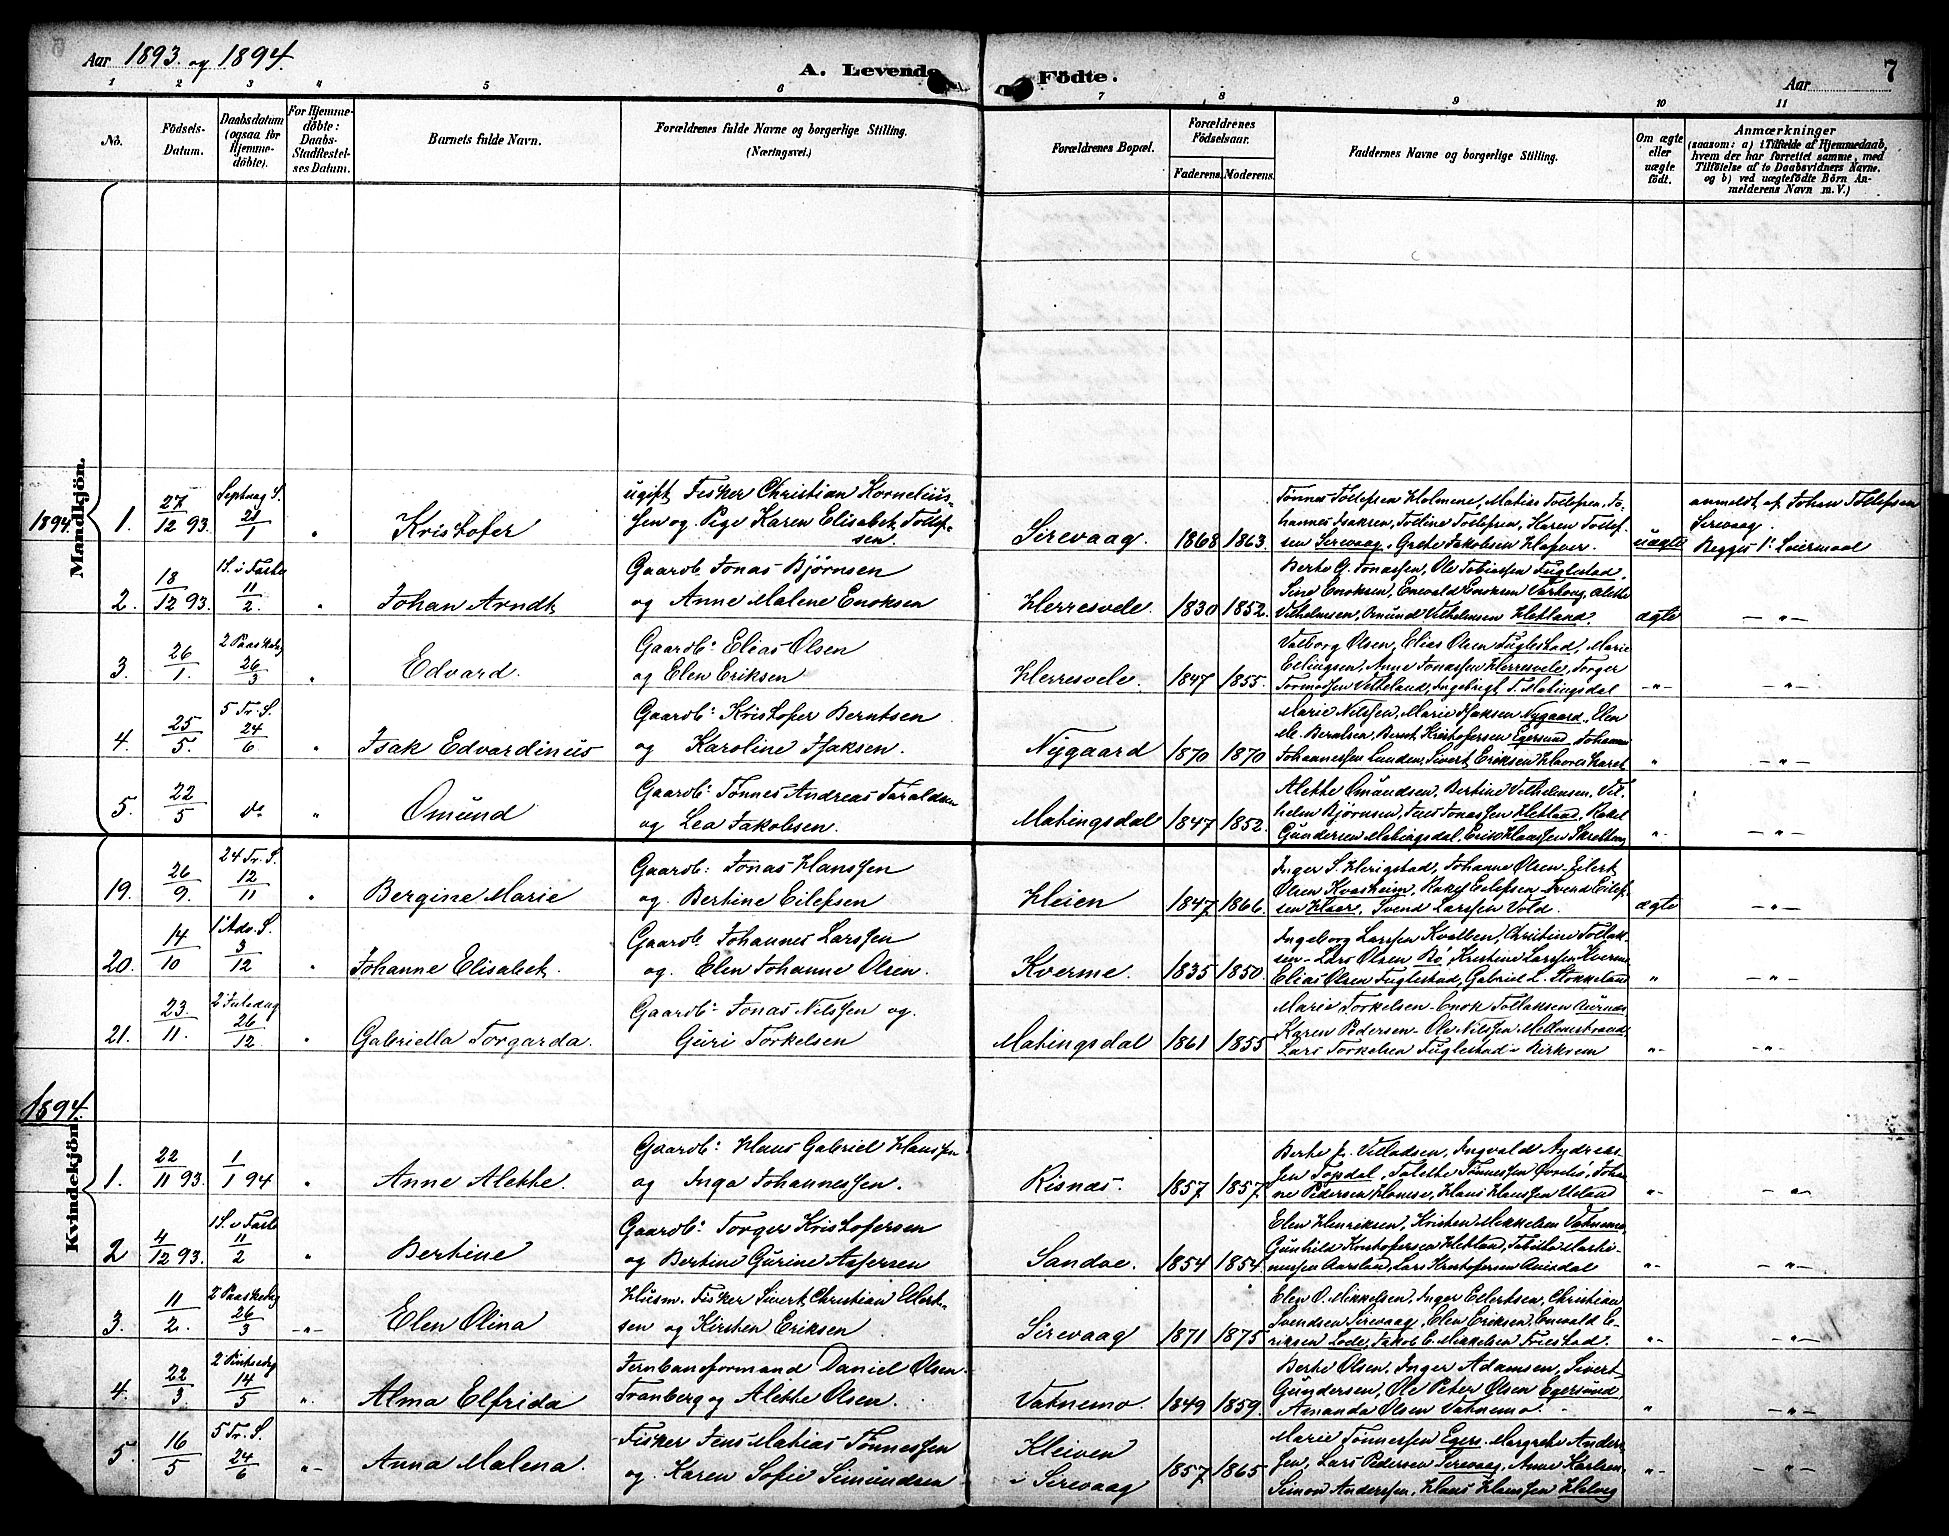 Aar 1893. og 1894.
A. Levende Födte.
Aar
7
1 2 3 " 5 6 7 8 9 10 11
No.
Födsels-
Datum.
Daabsdatum
(ogsaa for
Hjemme-
döbte).
For Hjemme-
döbte:
Daabs-
Stadfæstel-
ses Datum.
Barnets fulde Navn.
Forældrenes fulde Navne og borgerlige Stilling.
(Næringsvei.)
Forældrenes Bopæl.
Forældrenes
Födselsaar.
Faderens. Moderens.
Faddernes Navne og borgerlige Stilling.
Om ægte
eller
uægte
födt.
Anmærkninger
(saasom: a) i Tilfælde af Hjemmedaab,
hvem der har forrettet samme, med
Tilföielse af to Daabsvidners Navne.
og b) ved uægtefödte Börn An-
melderens Navn m. V.)
1894
Mandkjön.
1.
27
12 93.
Septuag S.
21
1
"
Kristofer
ugift Fisker Christian Kornelius-
sen og Pige Karen Elisabet Tollef-
sen.
Sirevaag.
1868 1863.
Tønnes Tollefsen Holmene, Matias Tollefsen, Jo-
hannes Isaksen, Tolline Tollefsen, Karen Tollef-
sen Sirevaag, Grete Jakobsen Hafver.
uægte
anmeldt af Johan Tollefsen
Sirevaag.
Begges 1ste Leiermaal
2.
18
12 93.
1 S. i Faste
11
2.
"
Johan Arndt
Gaardb. Jonas Bjørnsen
og Anne Malene Enoksen
Herresvele.
1830 1852.
Berte G. Jonassen, Ole Tobiassen Fuglestad,
Sine Enoksen, Enevald Enoksen Varhoug, Alette
Vilhelmsen, Omund Vilhelmsen Hetland.
ægte
— " —
3.
26
1.
2 Paaskedag
26
3
"
Edvard.
Gaardb: Elias Olsen
og Elen Eriksen
Herresvele.
1847 1855.
Valborg Olsen, Elias Olsen Fuglestad, Marie
Erlingsen, Anne Jonassen Herresvele, Torger
Tormodsen Veteland, Ingebrigt T. Matingsdal
— " —
— " —
4.
25
5.
5 Tr. S.
24
6.
"
Isak Edvardinus
Gaardb: Kristofer Berntsen
og Karoline Isaksen.
Nygaard
1870 1870
Marie Nilssen, Marie Isaksen Nygaard, Elen
M. Berntsen, Bernt Kristofersen Egersund, Johannes
Johannessen Lunden, Sivert Eriksen
"
— " —
5.
22
5
do
"
Omund
Gaardb: Tønnes Andreas Taraldsen
og Lea Jakobsen.
Matingsdal
1847 1852.
Alette Omundsen, Bertine Vilhelmsen, Vil-
helm Bjørnsen, Jens Jonassen Hetland, Rakel
Gundersen Matingsdal, Erik Klaassen
"
— " —
19.
26
9.
24 Tr. S.
12
11
"
Bergine Marie
Gaardb: Jonas Hanssen
og Bertine Eilefsen
Heien
1847 1866.
Inger S. Herigstad, Johanne Olsen - Eilert
Olsen Kvasheim, Rakel Eilefsen - Svend Eilef-
sen Haar, Svend Larssen Vold.
ægte
— " —
20.
14
10
1 Adv. S.
3
12
"
Johanne Elisabet.
Gaardb. Johannes Larssen
og Elen Johanne Olsen.
Kverme.
1835 1850.
Ingeborg Larssen Kvalben, Christine Tollak-
sen - Lars Olsen Bø, Kristine Larssen Kverme
Elias Olsen Fuglestad, Gabriel L. Stokkeland
"
— " —
21.
23.
11.
2 Juledag
26
12
"
Gabriella Torgarda.
Gaardb: Jonas Nilssen og
Guri Torkelsen
Matingsdal
1861 1855
Marie Torkelsen - Enok Tollaksen
Karen Pedersen - Ole Nilssen
Lars Torkelsen Fuglestad - Birkrem
"
— " —
1894.
Kvindekjön.
1.
22
11 93.
1
1 94
"
Anne Alette.
Gaardb: Hans Gabriel Hanssen
og Inga Johannessen.
Risnæs.
1857 1857.
Berte J. Villadsen, Ingvald Andreas-
sen Topdal, Talette Tønnessen, Joha-
ne Pedersen, Hans Hanssen Ueland
"
— " —
2
4
12 93.
1 S. i Faste
11
2
"
Bertine
Gaardb: Torger Kristofersen
og Bertine Gurine Assersen
Sandve.
1854 1854.
Elen Henriksen, Kristen Mikkelsen Vatnemo,
Gunhild Kristofersen Hetland, Tabitha Marti-
nussen Aarsland, Lars Kristofersen
"
— " —
3.
11
2.
2 Paaskedag
26
3
— " —
Elen Olina
Husm. Fisker Sivert Christian Eilert-
sen og Kirsten Eriksen
Sirevaag
1871 1875
Elen O. Mikkelsen, Inger Eilertsen, Christian
Svendsen Sirevaag, Elen Eriksen, Enevald E-
riksen Lode, Jakob E. Mikkelsen Friestad.
"
— " —
4.
22
3.
2 Pintsedag
14
5
"
Alma Elfrida
Jernbaneformand Daniel Olsen
Tranberg og Alette Olsen.
Vatnemo.
1849 1859.
Berte Olsen, Inger Adamsen, Sivert
Gundersen, Ole Peter Olsen Egersund,
Amanda Olsen Vatnemo.
"
— " —
5.
16
5
5 Tr. S.
24
6
"
Anna Malena.
Fisker Jens Matias Tønnessen
og Karen Sofie Simundsen
Kleiven
i Sirevaag
1857 1865
Marie Tønnessen Egers. Margrete Ander-
sen, Lars Pedersen Sirevaag, Anne Karlsen,
Simon Anderssen, Hans Hanssen
"
— " —